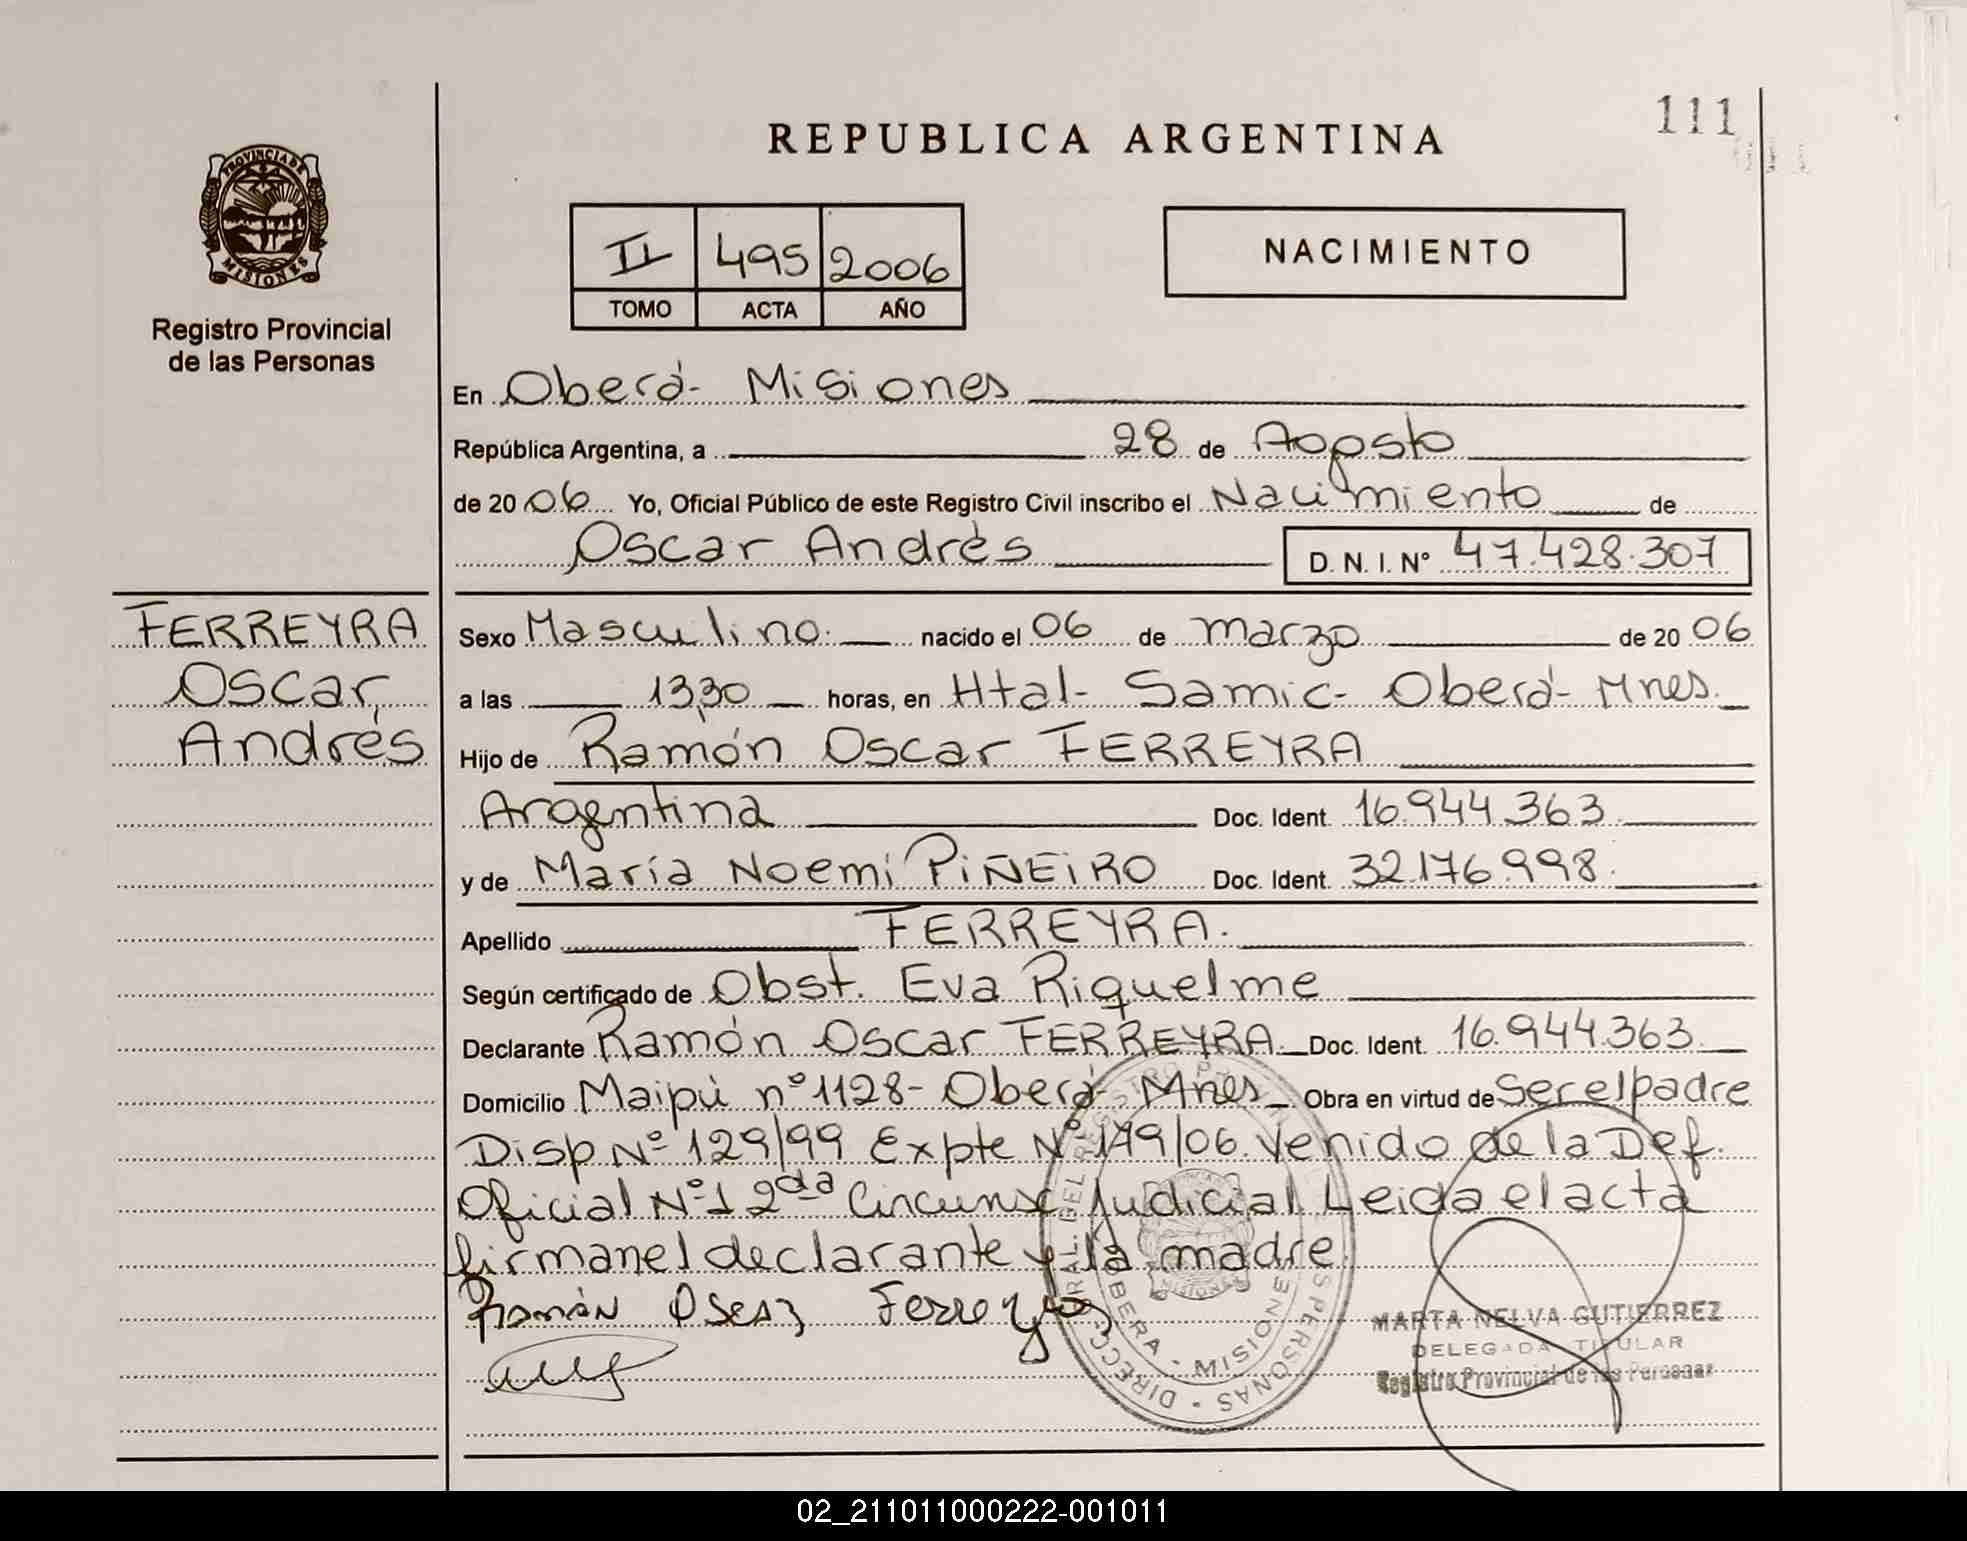 111
REPUBLICA ARGENTINA
PROVINCIA DE
MISIONES
Registro Provincial
de las Personas
II 495 2006
TOMO ACTA AÑO
NACIMIENTO
En Oberá- Misiones
República Argentina, a 28 de Agosto
de 20 06 Yo, Oficial Público de este Registro Civil inscribo el Nacimiento de
Oscar Andrés D. N. I. Nº 47.428.307
FERREYRA
Oscar
Andrés
Sexo Masculino. nacido el 06 de marzo de 20 06
a las 13,30 horas, en Htal- Samic- Oberá- Mnes.
Hijo de Ramón Oscar FERREYRA
Argentina Doc. Ident. 16.944.363
y de María Noemi PIÑEIRO Doc. Ident. 32.176.998.
Apellido FERREYRA.
Según certificado de Obst. Eva Riquelme
Declarante Ramón Oscar FERREYRA. Doc. Ident. 16.944.363.
Domicilio Maipú nº 1128- Oberá- Mnes Obra en virtud de Ser el padre
Disp Nº 129/99 Expte Nº 179/06. Venido de la Def.
Oficial Nº 1 2da Circunsc Judicial Leida el acta
firman el declarante y la madre.
Ramón Oscar Ferreyra
MARTA NELVA GUTIERREZ
DELEGADA TITULAR
Registro Provincial de las Personas
OBERA - MISIONE
02_211011000222-001011